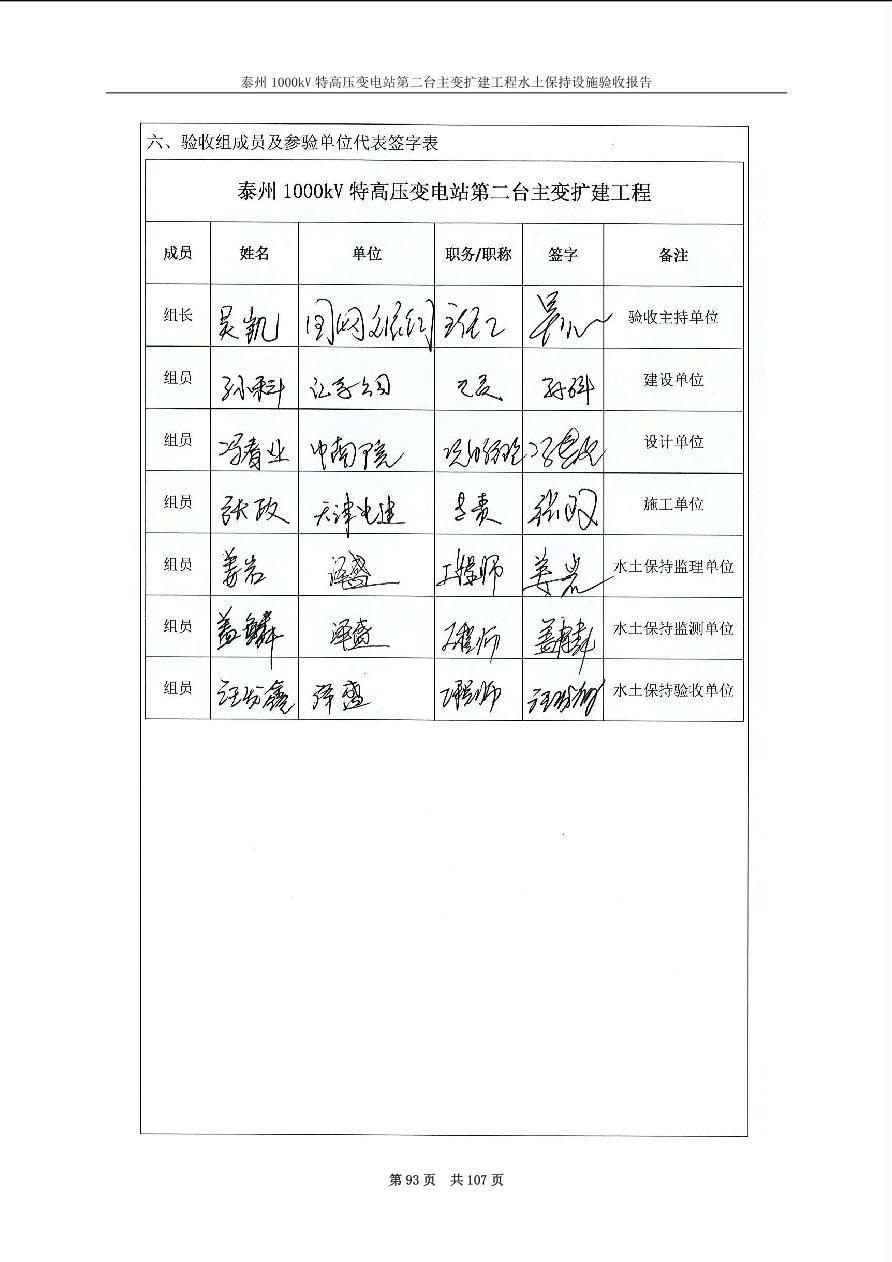 泰州 1000kV 特高压变电站第二台主变扩建工程水土保持设施验收报告
六、验收组成员及参验单位代表签字表
泰州 1000kV 特高压变电站第二台主变扩建工程
成员 姓名 单位 职务/职称 签字 备注
组长 吴凯 国网 验收主持单位
组员 孙科 公司 孙科 建设单位
组员 冯春业 中南院 设计单位
组员 张政 天津电建 张政 施工单位
组员 姜岩 泽盛 工程师 姜岩 水土保持监理单位
组员 盖鳞 泽盛 工程师 水土保持监测单位
组员 泽盛 工程师 水土保持验收单位
第 93 页 共 107 页